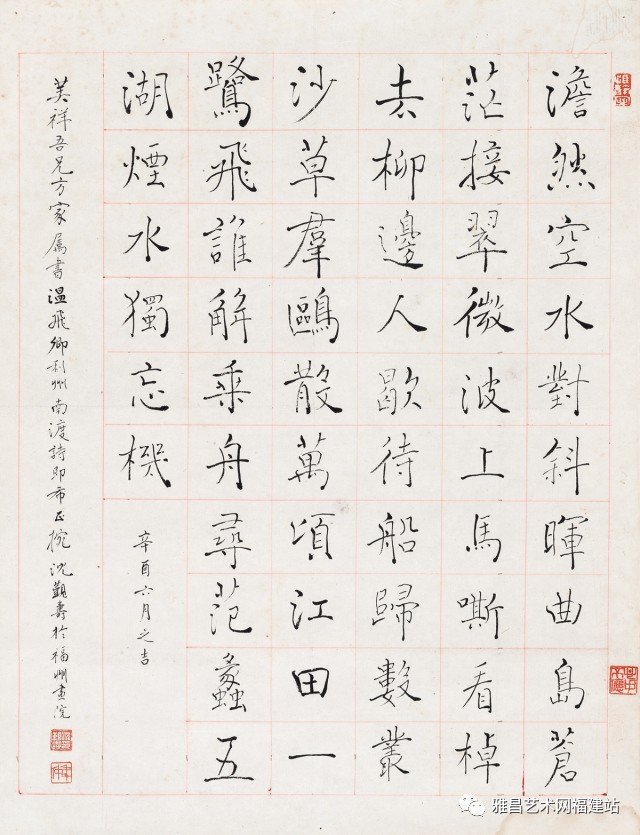 澹然空水對斜暉曲島蒼
茫接翠微波上馬嘶看棹
去柳邊人歇待船歸數叢
沙草羣鷗散萬頃江田一
鷺飛誰解乘舟尋范蠡五
湖煙水獨忘機
辛酉六月之吉
英祥吾兄方家属書溫飛卿利州南渡詩即希正捥沈覲壽於福州畫院
雅昌艺术网福建站